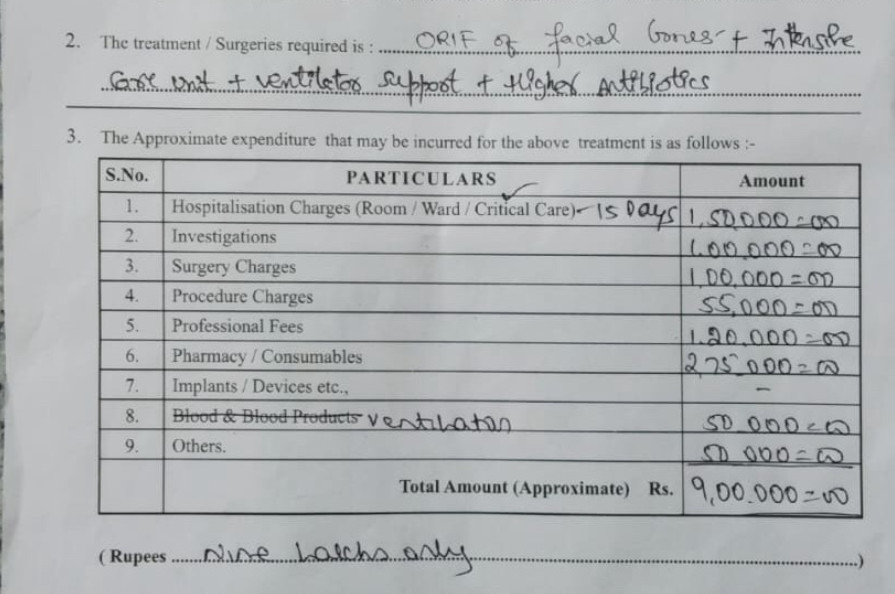 2. The treatment / Surgeries required is : ORIF of facial bones + Intensive
Care unit + ventilator support + Higher Antibiotics
3. The Approximate expenditure that may be incurred for the above treatment is as follows :-
S.No. PARTICULARS Amount
1. Hospitalisation Charges (Room / Ward / Critical Care) - 15 Days 1,50,000=00
2. Investigations 1,00,000=00
3. Surgery Charges 1,00,000=00
4. Procedure Charges 55,000=00
5. Professional Fees 1,20,000=00
6. Pharmacy / Consumables 2,75,000=00
7. Implants / Devices etc., -
8. Blood & Blood Products Ventilator 50,000=00
9. Others. 50,000=00
Total Amount (Approximate) Rs. 9,00,000=00
( Rupees Nine Lakhs only )